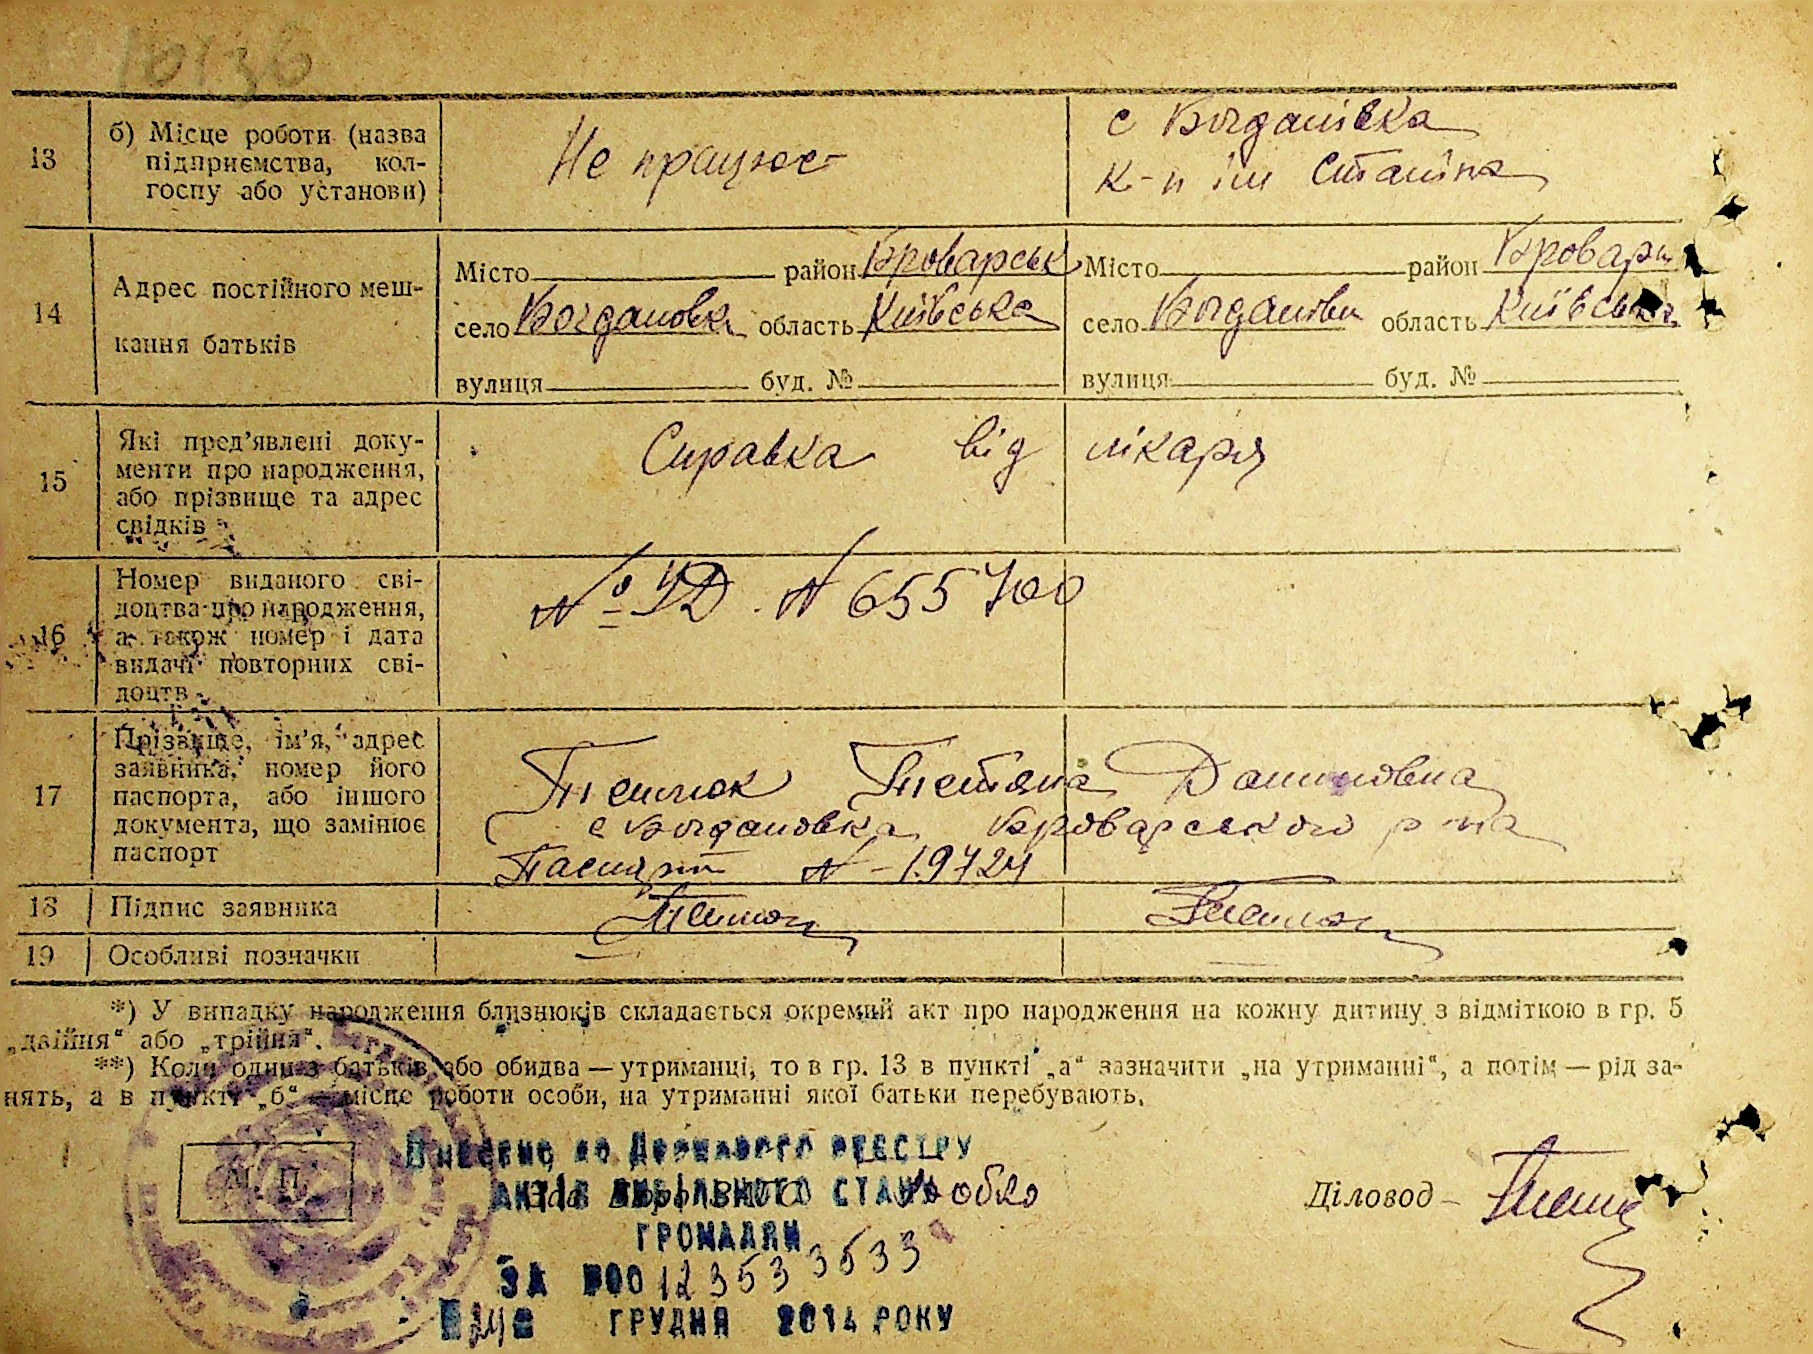 10136
13
б) Місце роботи (назва
підприємства, кол-
госпу або установи)
Не працює
с Богданівка
к-п ім Сталіна
14
Адрес постійного меш-
кання батьків
Місто район Броварськ
село Богдановка область Київська
вулиця буд. №
Місто район Бровари
село Богдановка область Київська
вулиця буд. №
15
Які пред'явлені доку-
менти про народження,
або прізвище та адрес
свідків
Справка від лікаря
16
Номер виданого сві-
доцтва про народження,
а також номер і дата
видачі повторних сві-
доцтв
№ УД. N 655700
17
Прізвище, ім'я, адрес
заявника, номер його
паспорта, або іншого
документа, що замінює
паспорт
Тетяна
с Богдановка Броварського р-на
Паспорт N - 19724
18
Підпис заявника
19
Особливі позначки
*) У випадку народження близнюків складається окремий акт про народження на кожну дитину з відміткою в гр. 5
„двійня“ або „трійня“.
**) Коли один з батьків або обидва — утриманці, то в гр. 13 в пункті „а“ зазначити „на утриманні“, а потім — рід за-
нять, а в пункті „б“ — місце роботи особи, на утриманні якої батьки перебувають.
М. П.
Внесено до Державного реєстру
актів цивільного стану
громадян
за 00012353 3533
24 грудня 2014 року
Діловод –